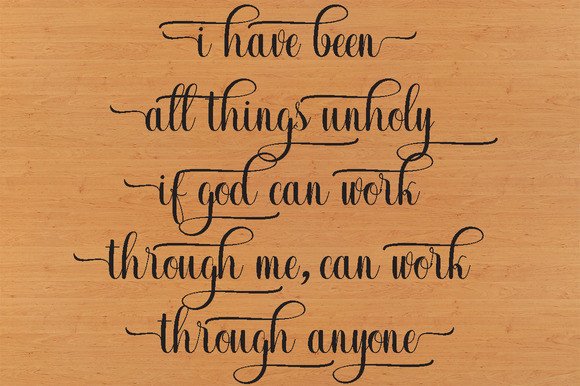 i have been
all things unholy
if god can work
through me, can work
through anyone